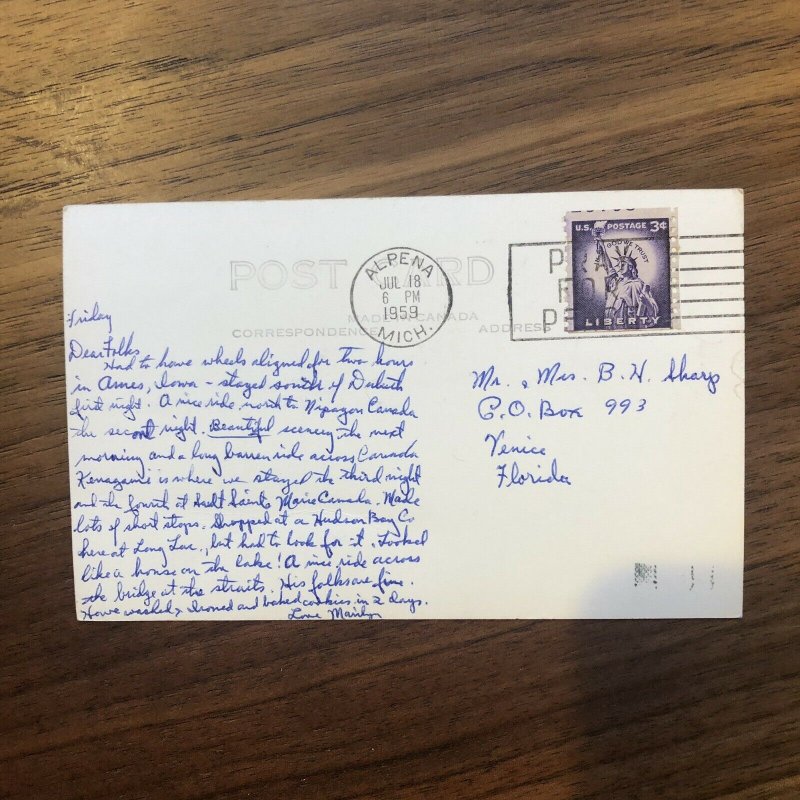 POST CARD
MADE IN CANADA
CORRESPONDENCE ADDRESS
ALPENA
JUL 18
6 PM
1959
MICH.
U.S. POSTAGE 3¢
IN GOD WE TRUST
LIBERTY
Friday
Dear Folks
Had to have wheels aligned for two hours
in Ames, Iowa - stayed south of Duluth
first night. A nice ride north to Nipagon Canada
the second night. Beautiful scenery the next
morning and a long barren ride across Canada
Kenagami is where we stayed the third night
and the fourth at Sault Sainte Marie Canada. Made
lots of short stops. Shopped at a Hudson Bay Co
here at Long Lac., but had to look for it. Looked
like a house on the lake! A nice ride across
the bridge at the straits. His folks are fine.
Have washed, ironed and baked cookies in 2 days.
Love Marilyn
Mr. & Mrs. B. H. Sharp
P.O. Box 993
Venice
Florida